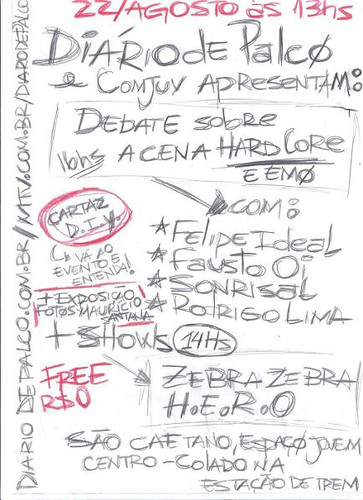 22/AGOSTO às 13hs
DiÁRiO de PalcO
e ComJuv APRESENTAM:
DEBATE SOBRE
A CENA HARD CORE
E EMO
16hs
CARTAZ
D.I.Y.
VÁ AO
EVENTO E
ENTENDA!
COM:
*Felipe Ideal
*Fausto Oi
*SONRISAL
*RODRIGO LIMA
+EXPOSIÇÃO
FOTOS MAURICIO
SANTANA
+ SHOWS 14Hs
FREE
R$0
ZEBRA ZEBRA
H.E.R.O
SÃO CAETANO, ESPAÇO JOVEM
CENTRO - COLADO NA
ESTAÇÃO DE TREM
DIARIO DE PALCO.COM.BR//MTV.COM.BR/DIARODEPALCO